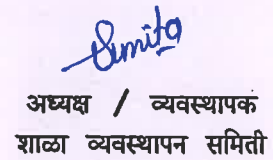 Sumita
अध्यक्ष / व्यवस्थापक
शाळा व्यवस्थापन समिती